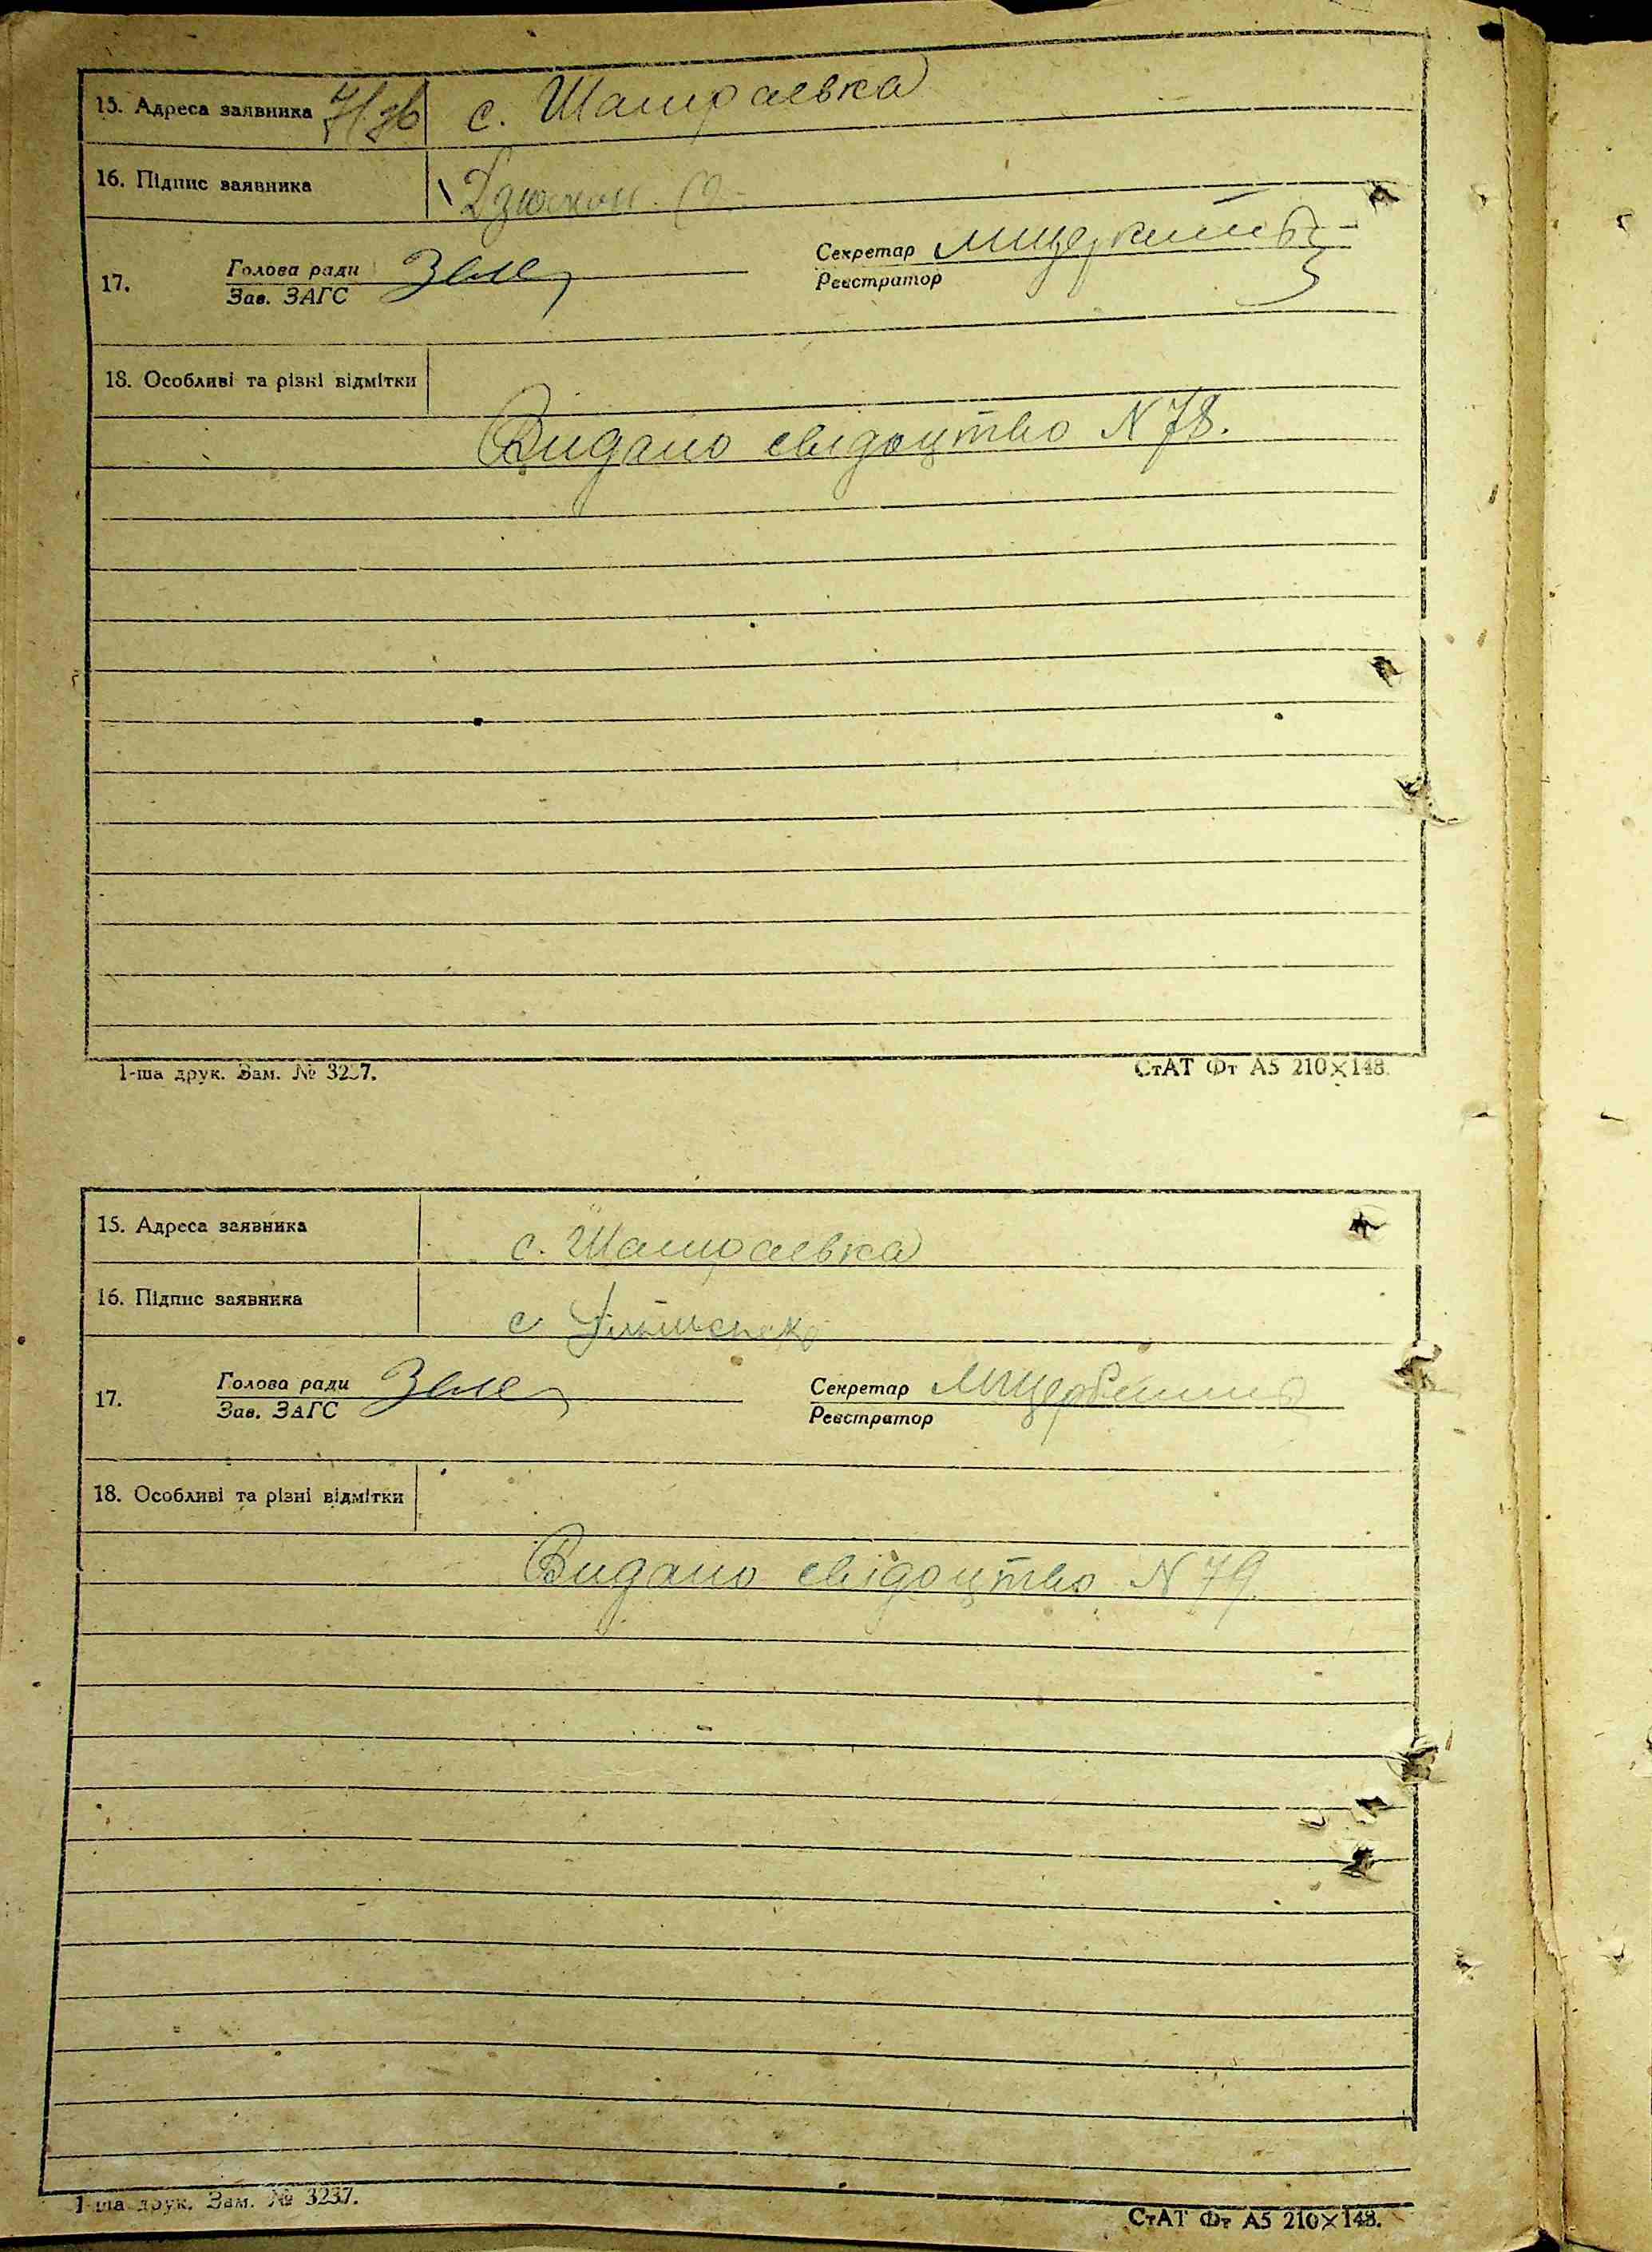 15. Адреса заявника с. Шамраевка
16. Підпис заявника
17. Голова ради Секретар
Зав. ЗАГС Реєстратор
18. Особливі та різні відмітки
Видано свідоцтво N 78.
1-ша друк. Зам. № 3237.
СтАТ Фт А5 210×148.
15. Адреса заявника с. Шамраевка
16. Підпис заявника
17. Голова ради Секретар
Зав. ЗАГС Реєстратор
18. Особливі та різні відмітки
Видано свідоцтво N 79
1-ша друк. Зам. № 3237.
СтАТ Фт А5 210×148.